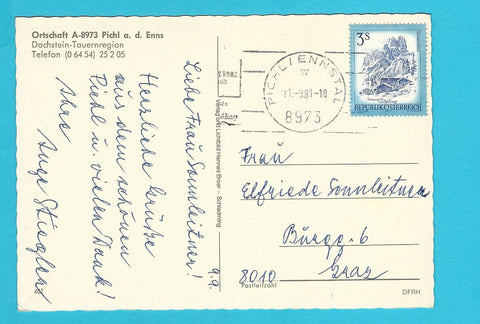 Ortschaft A-8973 Pichl a. d. Enns
Dachstein-Tauernregion
Telefon (0 64 54) 25 2 05
9.9.
Liebe Frau Sonnleitner!
Herzliche Grüße
aus dem schönen
Pichl u. vielen Dank!
Ihre
Verlag und Lichtbild Hannes Broer - Schladming
PICHL/ENNSTAL
-9.81-18
8973
3S
REPUBLIK ÖSTERREICH
Frau
Elfriede Sonnleitner
Bürgg. 6
8010 Graz
Postleitzahl
DFRH